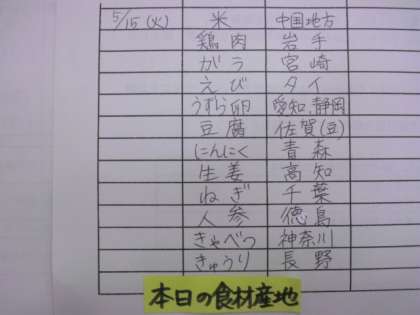 5/15(火) 米 中国地方
鶏肉 岩手
がら 宮崎
えび タイ
うずら卵 愛知、静岡
豆腐 佐賀(豆)
にんにく 青森
生姜 高知
ねぎ 千葉
人参 徳島
きゃべつ 神奈川
きゅうり 長野
本日の食材産地